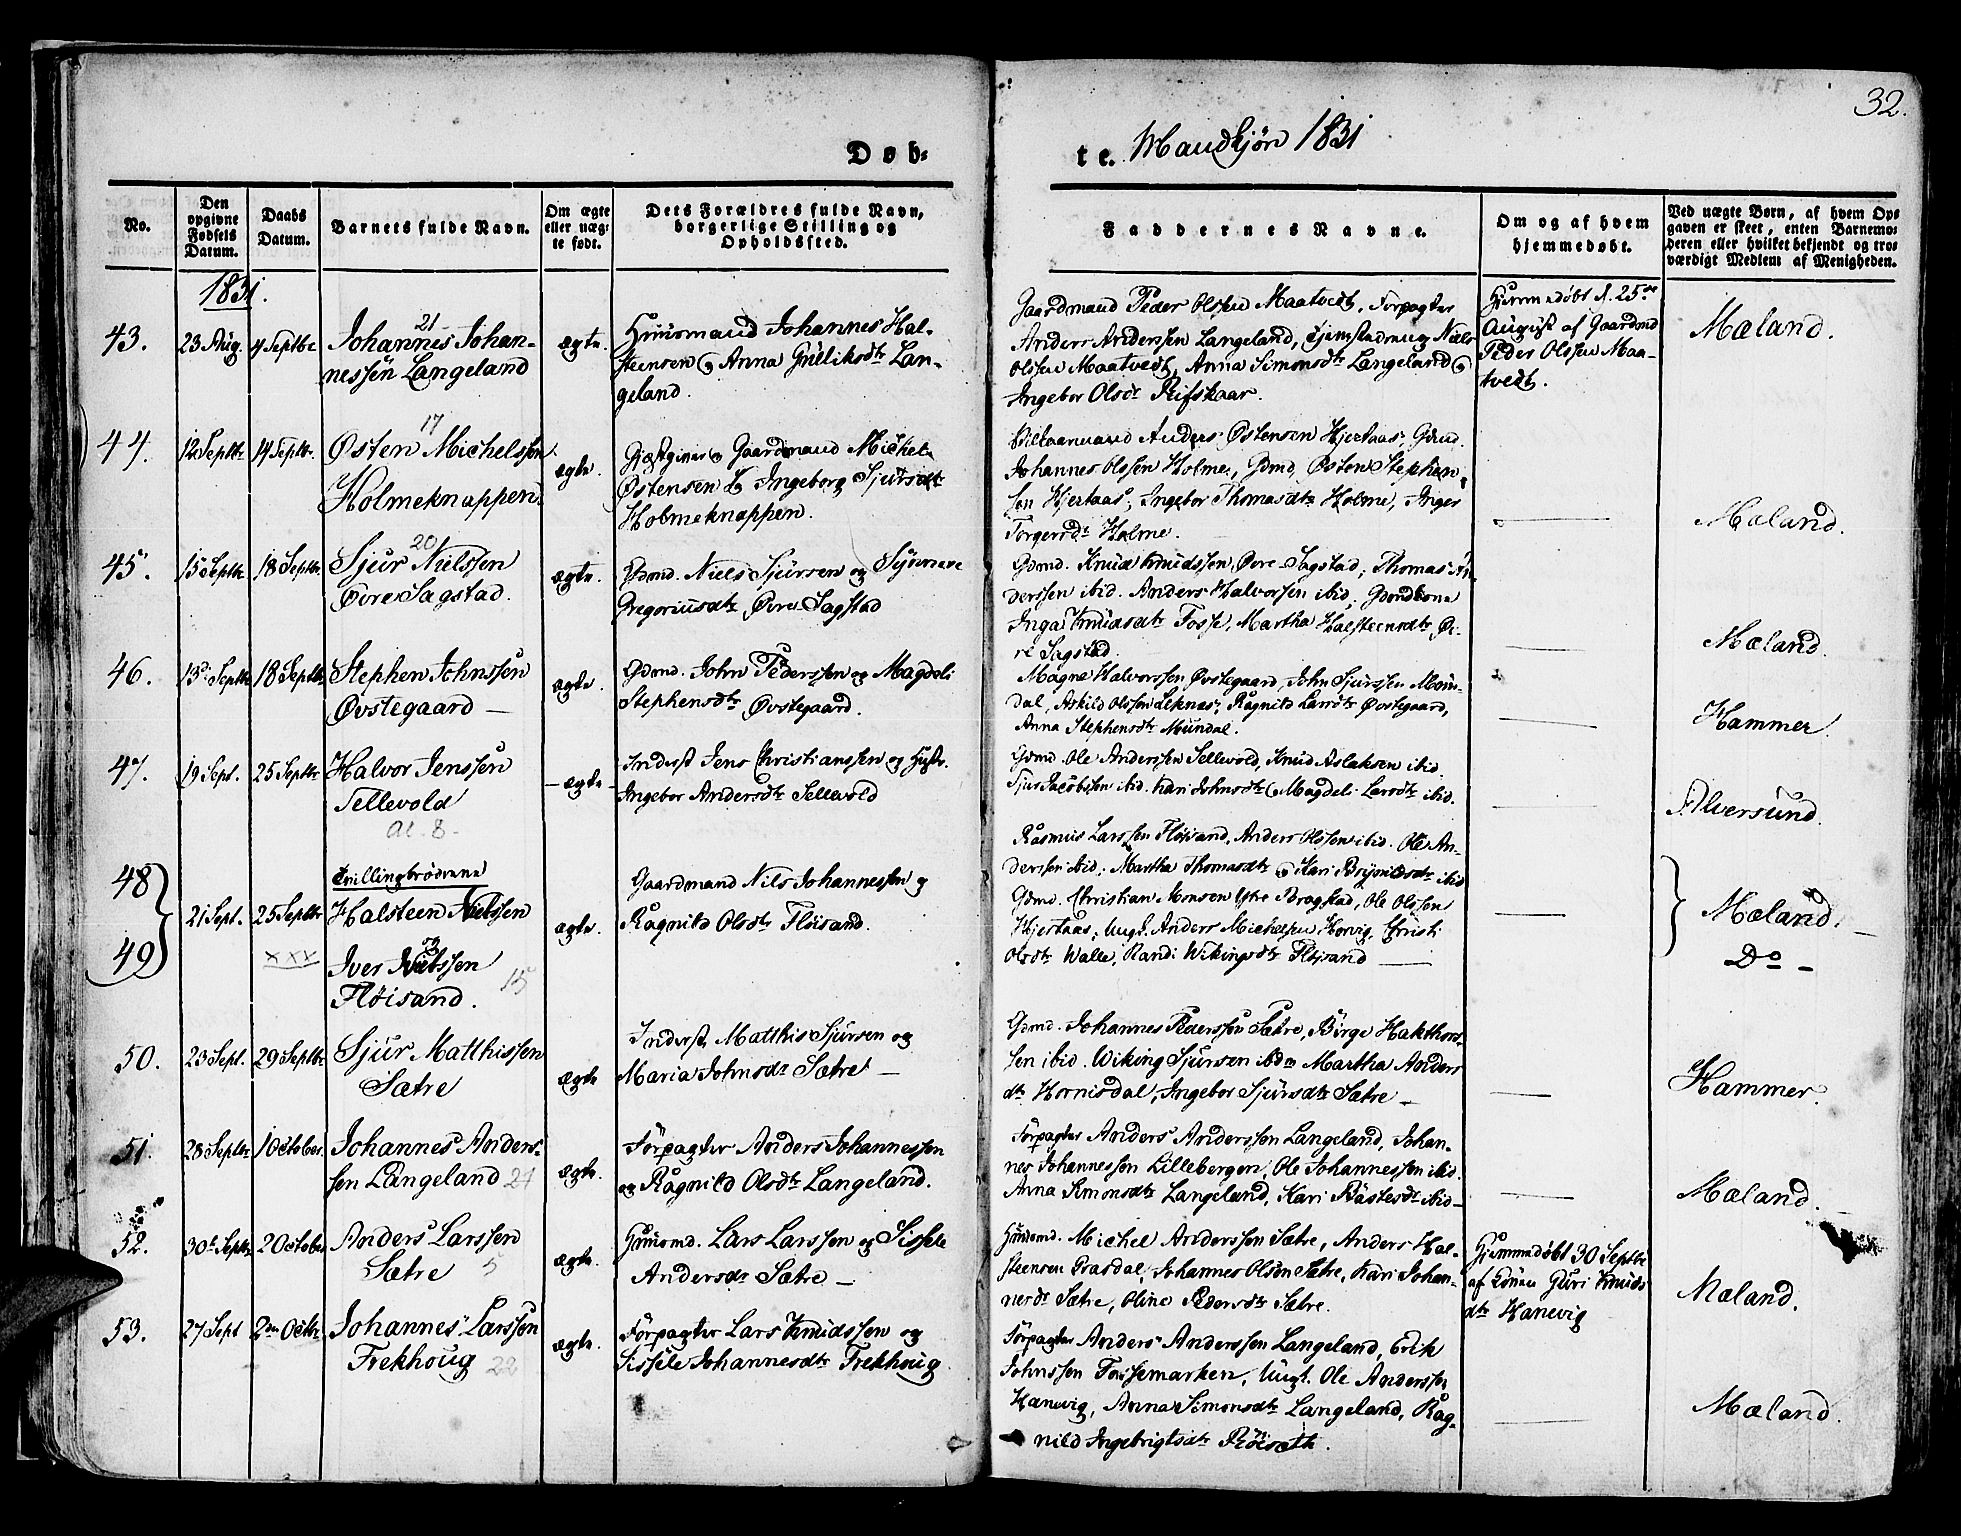 32.
Døb-
te. Mandkjøn 1831
No.
Den opgivne Fødsels Datum.
Daabs Datum.
Barnets fulde Navn.
Om ægte eller uægte født.
Dets Forældres fulde Navn, borgerlige Stilling og Opholdssted.
Faddernes Navne.
Om og af hvem hjemmedøbt.
Ved uægte Børn, af hvem Opgaven er skeet, enten Barnemoderen eller hvilket bekjendt og troværdigt Medlem af Menigheden.
1831.
43. 23 Aug. 4 Septbr
21
Johannes Johan-
nessen Langeland
ægte.
Huusmand Johannes Hal-
steensen og Anna Guliksdtr Lan-
geland.
Gaardmand Peder Olsen Maatvedt, Forpagter
Anders Anderssen Langeland, Niels
Olssen Maatvedt, Anna Simonsdtr Langeland og
Ingebor Olsdtr Rifskaar.
Hjemmedøbt d. 25de
August af Gaardmd
Peder Olssen Maa-
tvedt.
Mæland.
44. 12 Septbr 14 Septbr.
17
Østen Michelssen
Holmeknappen.
ægte.
Gjæstgiver og Gaardmand Michel
Østensen & Ingeborg Sjursdtr
Holmeknappen.
Anders Østensen Hjertaas, Gdmd.
Johannes Olssen Holme, Gdmd. Østen Stephen-
sen Hjertaas, Ingebor Thomasdtr Holme, Inger
Torgersdr Holme.
Mæland.
45. 15 Septbr 18 Septbr.
20
Sjur Nielssen
Øvre Sagstad.
ægte.
Gdmd. Niels Sjursen og Synneve
Gregoriusdtr Øvre Sagstad
Gdmd. Knud Knudssen Øvre Sagstad, Thomas An-
derssen ibid. Anders Halvorsen ibid; Gdmdkone
Inga Knudsdtr Fosse, Martha Halsteensdtr Øv-
re Sagstad.
Mæland.
46. 13de Septbr 18 Septbr.
Stephen Johnssen
Øvstegaard —
ægte.
Gdmd. John Pederssen og Magdeli
Stephensdtr Øvstegaard.
Magne Halvorssen Øvstegaard, John Sjurssen Mun-
dal, Askild Olssen Leknes, Ragnild Larsdtr Øvstegaard,
Anna Stephensdtr Mundal.
Hammer.
47. 19 Sept. 25 Septbr
Halvor Jenssen
Sellevold
al. 8-
— ægte —
Inderst Jens Christianssen og Hustr.
Ingebor Andersdtr Sellevold
Gdmd. Ole Anderssen Sellevold, Knud Aslaksen ibid.
Sjur Jacobssen ibid. Kari Johnsdtr og Magdeli Larsdtr ibid.
Alversund.
48
49
21 Sept. 25 Septbr
xxx
Tvillingbrødrene
Halsteen Nielssen
Iver Nielssen
Fløisand. 15
ægte.
Gaardmand Nils Johannessen og
Ragnild Olsdtr Fløisand.
Rasmus Larssen Fløisand, Anders Olssen ibid. Ole An-
derssen ibid; Martha Thomasdtr og Kari Brynildsdtr ibid
Gdmd. Christian Monsen Ytre Bragstad, Ole Olssen
Hjertaas, Ungk. Anders Michelsen Horvig, Christi
Olsdtr Walle, Randi Wikingsdtr Fløisand —
Mæland. —
Do —
50. 23 Sept. 29 Septbr
Sjur Matthissen
Sætre
ægte
Inderst Matthis Sjursen og
Maria Johnsdtr Sætre —
Gdmd. Johannes Pederssen Sætre, Børge Hakthors-
sen ibid. Wiking Sjursen ibdm Martha Anders
dtr Hornisdal, Ingebor Sjursdtr Sætre —
Hammer.
51. 28 Septbr 1 October.
Johannes Anders-
sen Langeland 21
ægte.
Forpagter Anders Johannessen
og Ragnild Olsdtr Langeland.
Forpagter Anders Anderssen Langeland, Johan-
nes Johannessen Lillebergen, Ole Johannessen ibid.
Anna Simonsdtr Langeland, Kari Bastesdtr ibid —
Mæland.
52. 30te Septbr 2 October
Anders Larssen
Sætre 5
ægte.
Huusmd. Lars Larssen og Sissele
Andersdr Sætre —
Huusmd. Michel Anderssen Sætre, Anders Hal-
steensen Grasdal, Johannes Olsen Sætre, Kari Johan-
nesdr Sætre, Oline Pedersdtr Sætre.
Hjemmedøbt 30 Septbr
af Konen Guri Knuds
dtr Hanevig
Mæland.
53. 27 Sept 2den Octbr.
Johannes Larssen
Frekhoug 22
ægte.
Forpagter Lars Knudssen og
Sissele Johannesdtr Frekhoug.
Forpagter Anders Anderssen Langeland, Erik
Johnssen Fossemarken, Ungk. Ole Anderssen
Hanevig, Anna Simonsdtr Langeland, Rag-
nild Ingebrigtsdtr Røisæth.
Mæland.